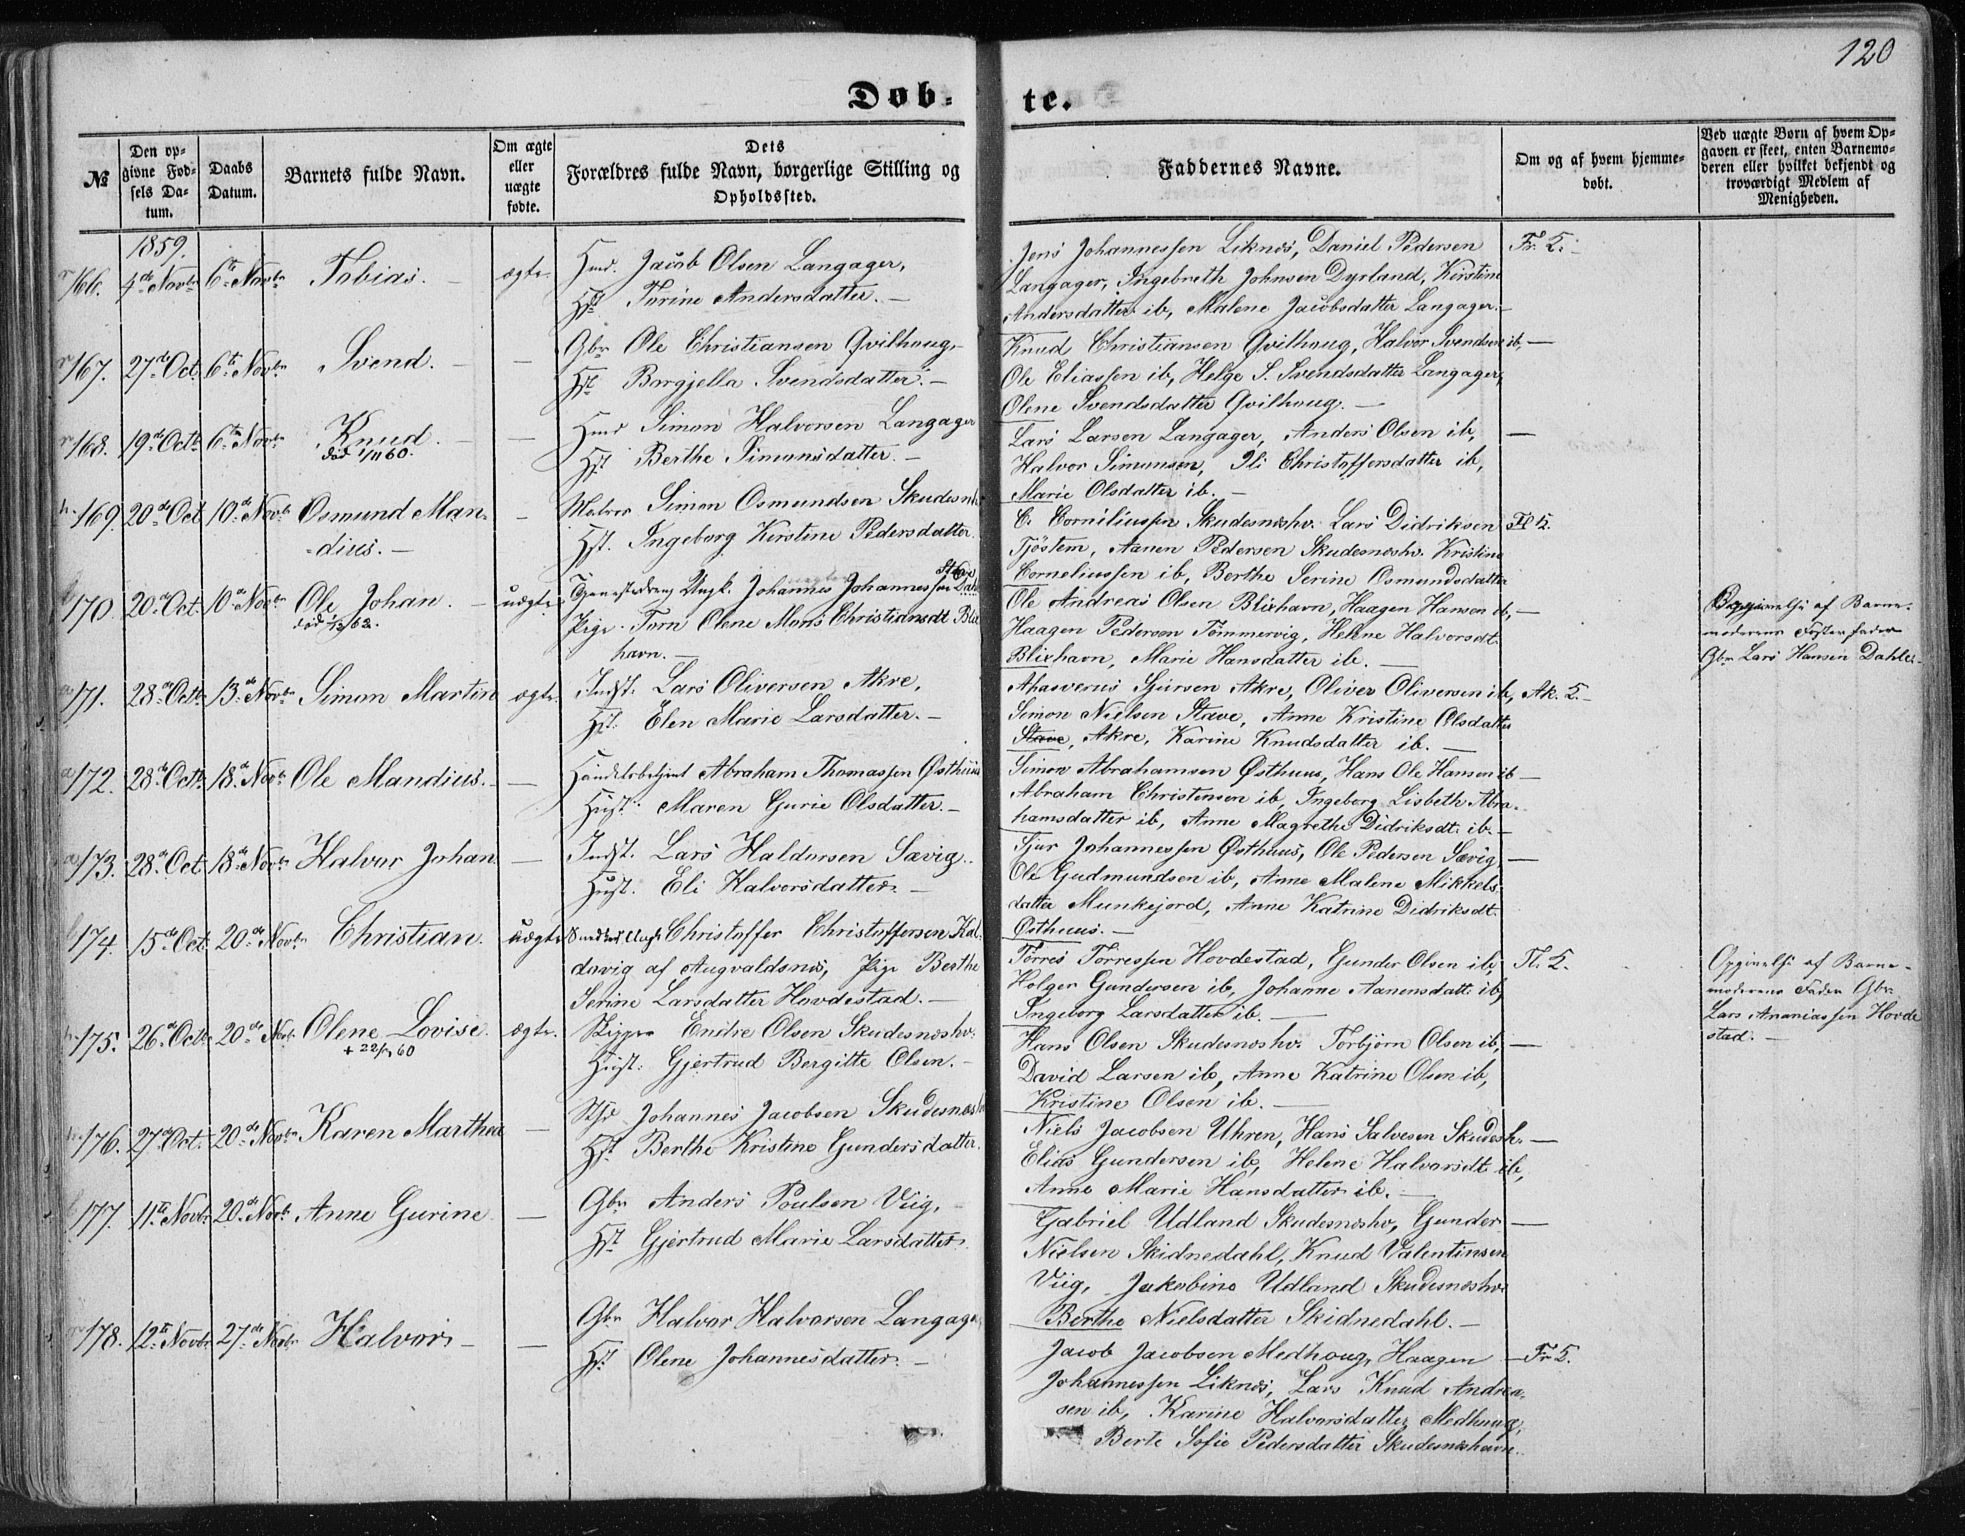 120
Døb-
te.
№
Den op-
givne Fød-
sels Da-
tum.
Daabs
Datum.
Barnets fulde Navn.
Om ægte
eller
uægte
fødte.
Dets
Forældres fulde Navn, borgerlige Stilling og
Opholdssted.
Faddernes Navne.
Om og af hvem hjemme-
døbt.
Ved uægte Børn af hvem Op-
gaven er skeet, enten Barnemo-
deren eller hvilket bekjendt og
troværdigt Medlem af
Menigheden.
1859.
166. 4de Novbr 6te Novbr Tobias. ægte. Hmd. Jacob Olsen Langager,
Hst. Turine Andersdatter.
Jens Johannessen Liknes, Daniel Pedersen
Langager, Ingebreth Johnsen Dyrland, Kirstine
Andersdatter ib, Malene Jacobsdatter Langager.
Fr. 5.
167. 27de Oct. 6te Novbr Svend. — Gbr Ole Christiansen Qvilhoug,
Hst. Borgjella Svendsdatter.
Knud Christiansen Qvilhoug, Halvor Svendsen ib, —
Ole Eliassen ib, Helge S. Svendsdatter Langager,
Olene Svendsdatter Qvilhoug.
168. 19de Octb. 6te Novbr Knud. — Hmd Simon Halvorsen Langager
død 1/11 60.
Hst. Berthe Simonsdatter.
Lars Larsen Langager, Anders Olsen ib, —
Halvor Simonsen, Ili Christoffersdatter ib,
Marie Olsdatter ib.
169. 20de Oct 10de Novbr Osmund Man- — Simon Osmundsen Skudesnh.
dius.
Hst. Ingeborg Kirstine Pedersdatter.
C. Corniliussen Skudesneshv. Lars Didriksen
Tjøstem, Aanen Pedersen Skudesneshv. Kristine
Corneliussen ib, Berthe Serine Osmundsdatter
170. 20de Oct. 10de Novbr Ole Johan. uægte Tjenestedreng Ungk. Johannes Johannessen
død 1/2 62.
Pige Turn Olene Mons Christiansdt Blix
havn.
Ole Andreas Olsen Blixhavn, Haagen Hansen ib, —
Haagen Pedersen Tømmervig, Helene Halvorsdt.
Blixhavn, Marie Hansdatter ib.
Opgivelse af Barne-
moderens Fosterfader
Gbr Lars Hansen Dahle.
171. 28de Octb. 13de Novbr Simon Martin ægte. Indst. Lars Oliversen Akre,
Hst. Elen Marie Larsdatter.
Ahasverus Sjursen Akre, Oliver Oliversen ib, Ak. 5.
Simon Nielsen Stave, Anne Kristine Olsdatter
Stave, Akre, Karine Knudsdatter ib.
172. 28de Octb. 18de Novbr Ole Mandius. — Handelsbetjent Abraham Thomassen Østhuus
Hust. Maren Gurie Olsdatter.
Simon Abrahamsen Østhuus, Hans Ole Hansen ib —
Abraham Christensen ib, Ingeborg Lisbeth Abra-
hamsdatter ib, Anne Magrethe Didriksdt. ib.
173. 28de Oct. 18de Novbr Halvor Johan. — Indst. Lars Haldorsen Sævig.
Hust. Eli Halvorsdatter.
Sjur Johannessen Østhuus, Ole Pedersen Sævig, —
Ole Gudmundsen ib, Anne Malene Mikkels-
datter Munkejord, Anne Katrine Didriksdt.
Østhuus.
174. 15de Oct. 20de Novbr Christian. uægte Christoffer Christoffersen Kal-
davig af Augvaldsnes, Pige Berthe
Serine Larsdatter Hovdestad.
Tørres Tørressen Hovdestad, Gunder Olsen ib, Fl. 5.
Holger Gundersen ib, Johanne Aanensdatt. ib,
Ingeborg Larsdatter ib.
Opgivelse af Barne-
moderens Fader Gbr.
Lars Ananiassen Hovde
stad.
175. 26de Octb. 20de Novbr Olene Lovise. ægte. Skipper Endre Olsen Skudesneshv.
Hust. Gjertrud Bergitte Olsen.
Hans Olsen Skudesneshv. Torbjørn Olsen ib, —
David Larsen ib, Anne Katrine Olsen ib,
Kristine Olsen ib.
176. 27de Oct. 20de Novbr Karen Marthea — Johannes Jacobsen Skudesnesh
Hst. Berthe Kristine Gundersdatter.
Niels Jacobsen Uhren, Hans Salvesen Skudesh. —
Elias Gundersen ib, Helene Halvorsdt. ib,
Anne Marie Hansdatter ib.
177. 11te Novbr 20de Novbr Anne Gurine — Gbr Anders Poulsen Viig,
Hst. Gjertrud Marie Larsdatter.
Gabriel Udland Skudesneshv, Gunder —
Nielsen Skidnedahl, Knud Valentinsen
Viig, Jakobine Udland Skudesneshv.
Berthe Nielsdatter Skidnedahl.
178. 12te Novbr 27de Novbr Halvor — Gbr Halvor Halvorsen Langager
Hst. Olene Johannesdatter.
Jacob Jacobsen Medhoug, Haagen — Fr 5.
Johannessen Liknes, Lars Knud Andrea-
sen ib, Karine Halvorsdatter Medhoug,
Berte Sofie Pedersdatter Skudesneshavn.